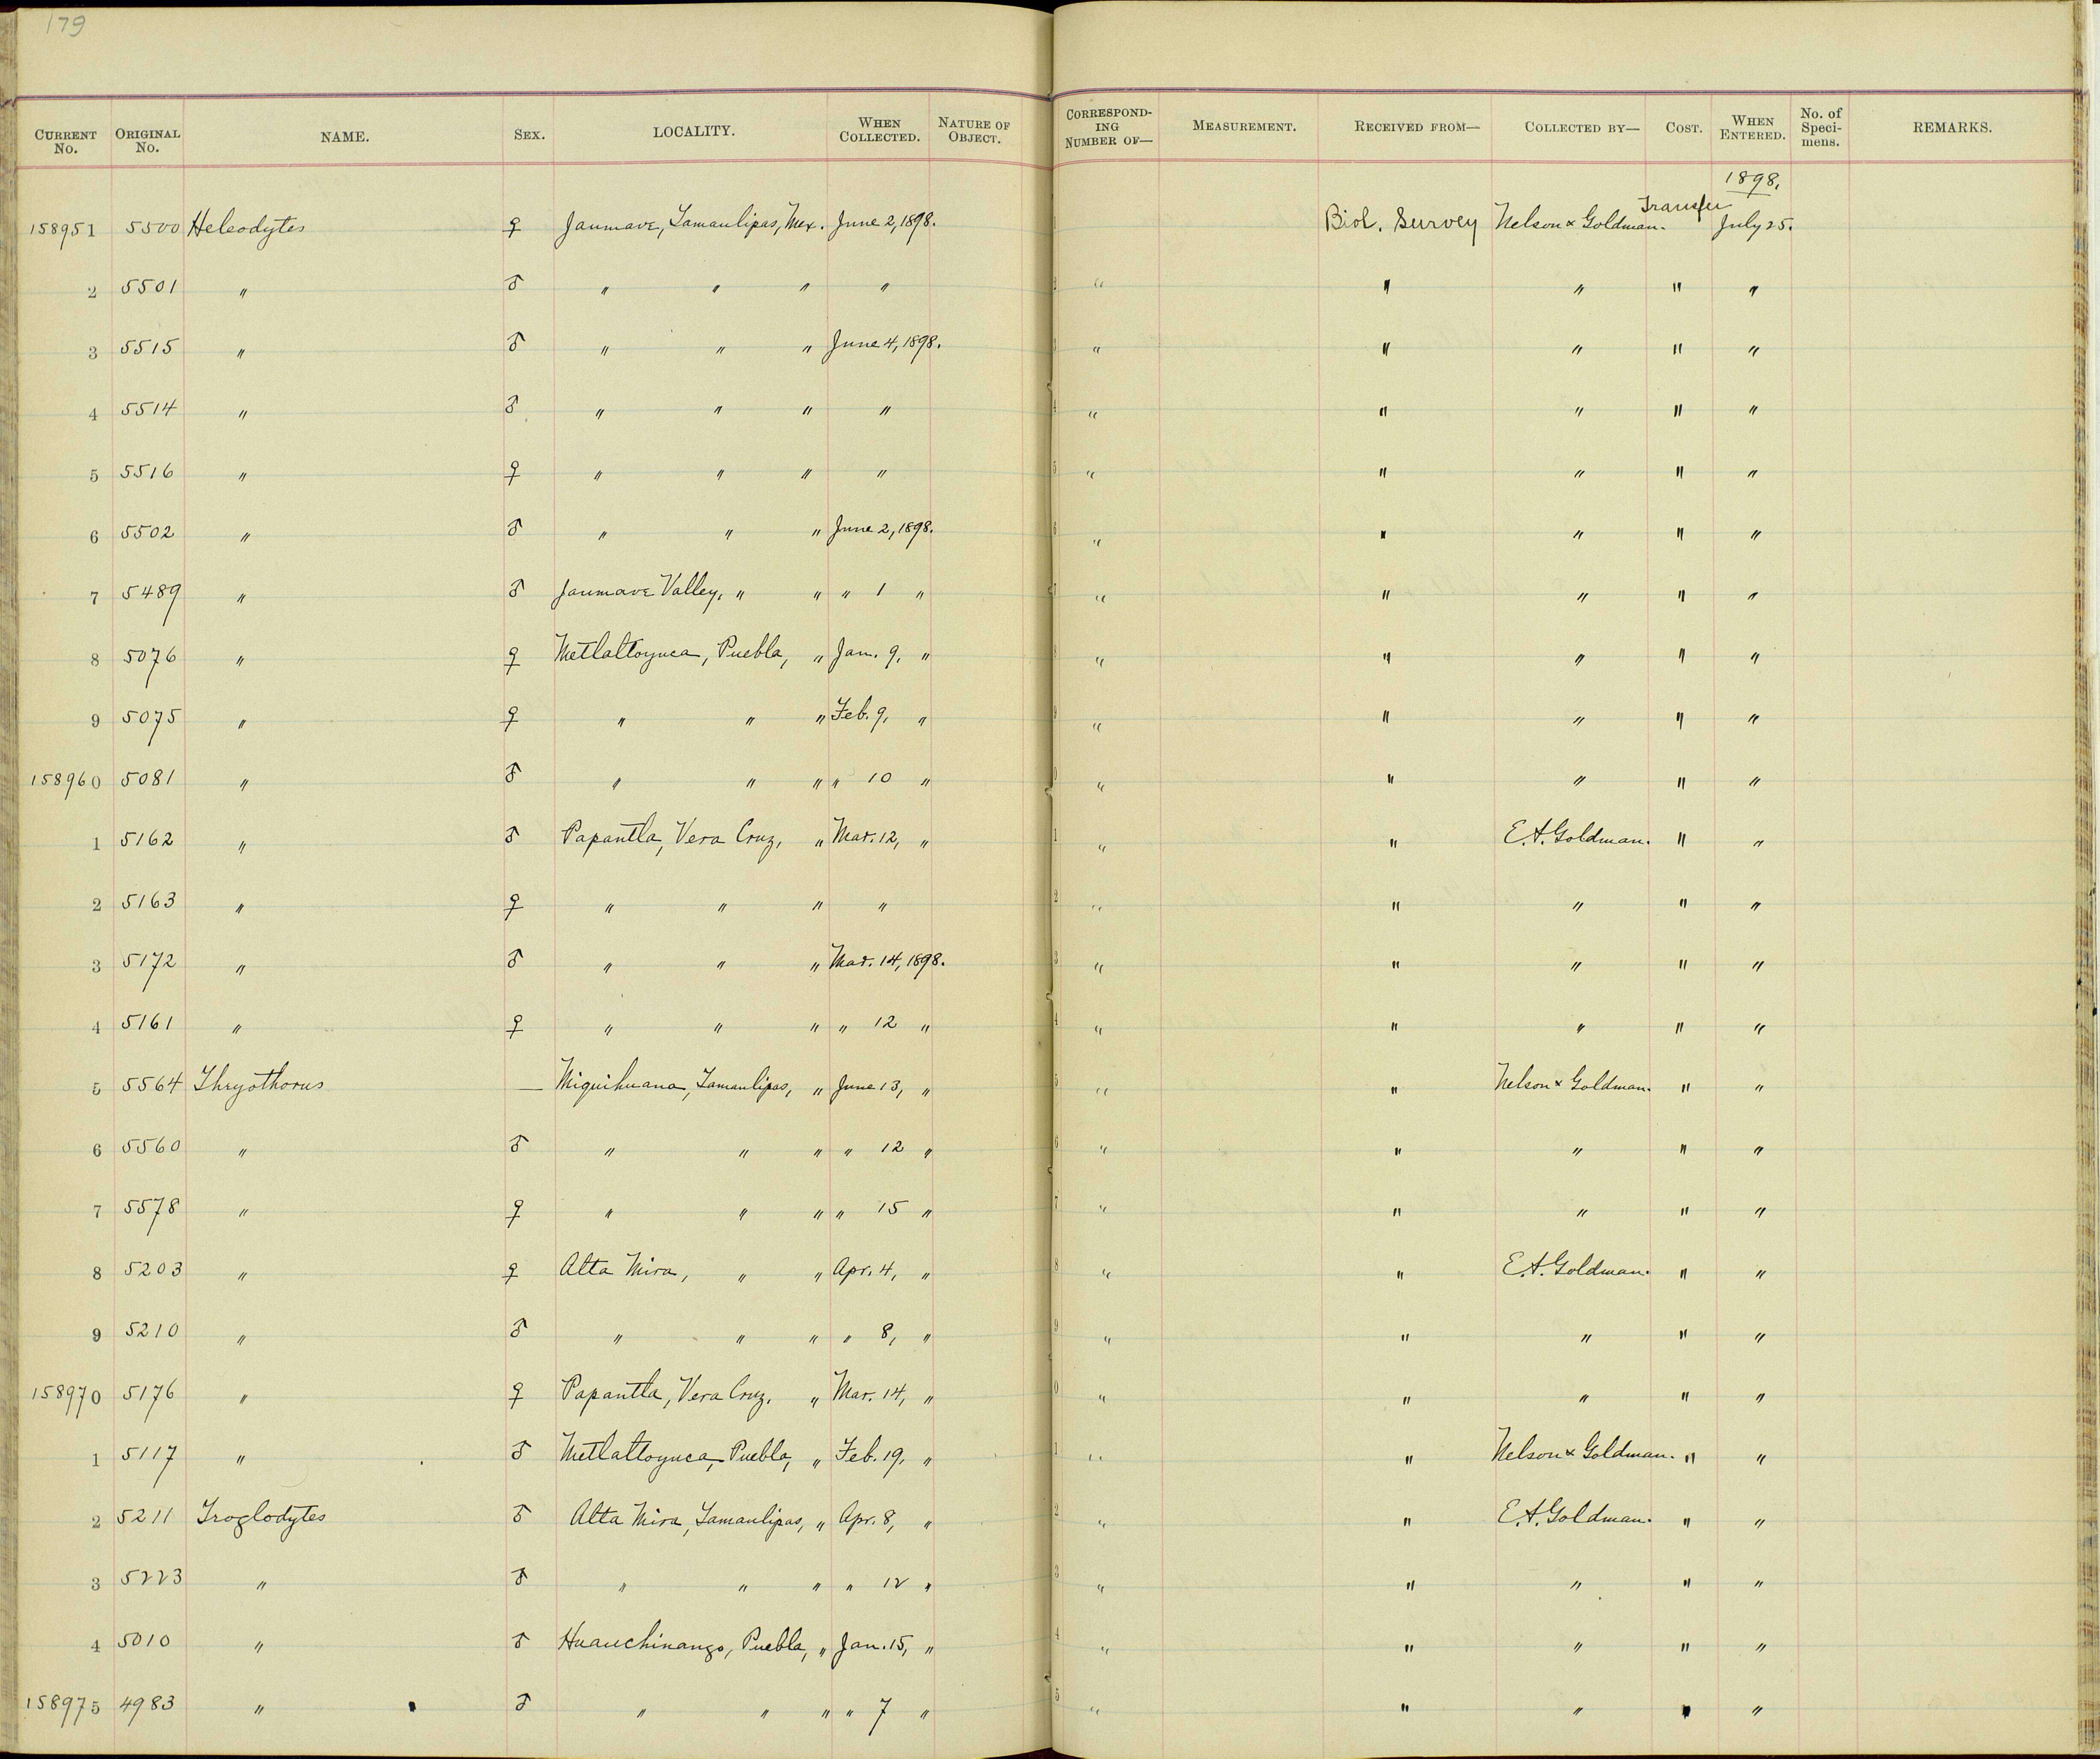 179
CURRENT No. ORIGINAL No. NAME. SEX. LOCALITY. WHEN COLLECTED. NATURE OF OBJECT. CORRESPONDING NUMBER OF— MEASUREMENT. RECEIVED FROM— COLLECTED BY— COST. WHEN ENTERED. No. of Specimens. REMARKS.
1898.
158951 5500 Heleodytes ♀ Jaumave, Tamaulipas, Mex. June 2, 1898. Biol. Survey Nelson & Goldman. Transfer July 25.
2 5501 " ♂ " " " " 2 " " " " "
3 5515 " ♂ " " " June 4, 1898. 3 " " " " "
4 5514 " ♂ " " " " 4 " " " " "
5 5516 " ♀ " " " " 5 " " " " "
6 5502 " ♂ " " " June 2, 1898. 6 " " " " "
7 5489 " ♂ Jaumave Valley, " " " 1 " 7 " " " " "
8 5076 " ♀ Metlaltoyuca, Puebla, " Jan. 9, " " " " " "
9 5075 " ♀ " " " Feb. 9, " 9 " " " " "
158960 5081 " ♂ " " " " 10 " 0 " " " " "
1 5162 " ♂ Papantla, Vera Cruz, " Mar. 12, " 1 " " E. A. Goldman. " "
2 5163 " ♀ " " " " 2 " " " " "
3 5172 " ♂ " " " Mar. 14, 1898. 3 " " " " "
4 5161 " ♀ " " " " 12 " 4 " " " " "
5 5564 Thryothorus — Miquihuana, Tamaulipas, " June 13, " 5 " " Nelson & Goldman. " "
6 5560 " ♂ " " " " 12 " 6 " " " " "
7 5578 " ♀ " " " " 15 " 7 " " " " "
8 5203 " ♀ Alta Mira, " " Apr. 4, " 8 " " E. A. Goldman. " "
9 5210 " ♂ " " " " 8, " 9 " " " " "
158970 5176 " ♀ Papantla, Vera Cruz, " Mar. 14, " 0 " " " " "
1 5117 " ♂ Metlaltoyuca, Puebla, " Feb. 19, " 1 " " Nelson & Goldman. " "
2 5211 Troglodytes ♂ Alta Mira, Tamaulipas, " Apr. 8, " 2 " " E. A. Goldman. " "
3 5223 " ♂ " " " " 12 " 3 " " " " "
4 5010 " ♂ Huauchinango, Puebla, " Jan. 15, " 4 " " " " "
158975 4983 " ♂ " " " " 7 " 5 " " " " "